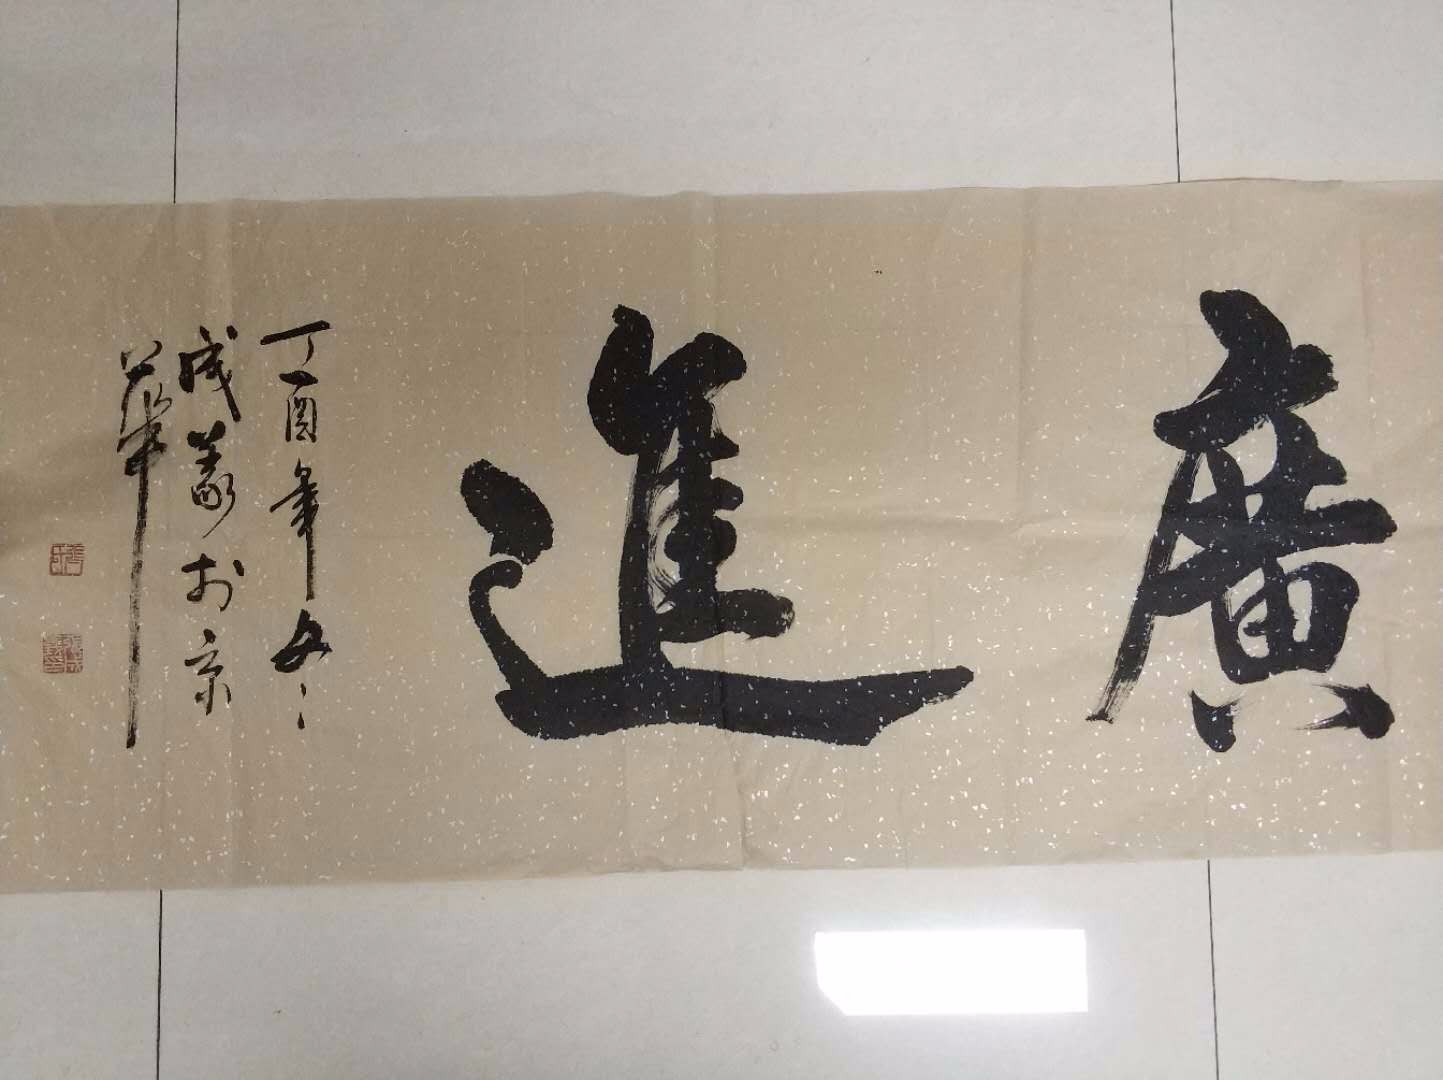 廣進
丁酉年冬
成義於京
華